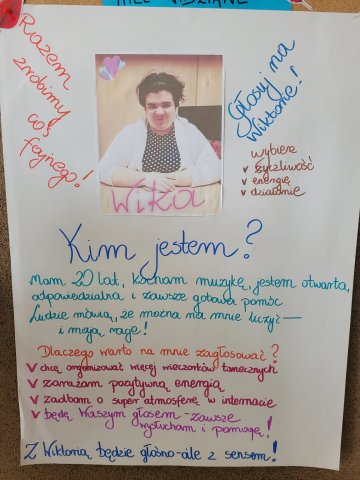 MILE WIDZIANE
Razem
zrobimy
coś
fajnego!
Głosuj na
Wiktorię!
wybierz
v życzliwość
v energię
v działanie
Wika
Kim jestem?
Mam 20 lat, kocham muzykę, jestem otwarta,
odpowiedzialna i zawsze gotowa pomóc.
Ludzie mówią, że można na mnie liczyć —
i mają rację!
Dlaczego warto na mnie zagłosować?
v chcę organizować więcej wieczorków tanecznych
v zarażam pozytywną energią
v zadbam o super atmosferę w internacie
v będę Waszym głosem - zawsze
wysłucham i pomogę!
Z Wiktorią będzie głośno - ale z sensem!